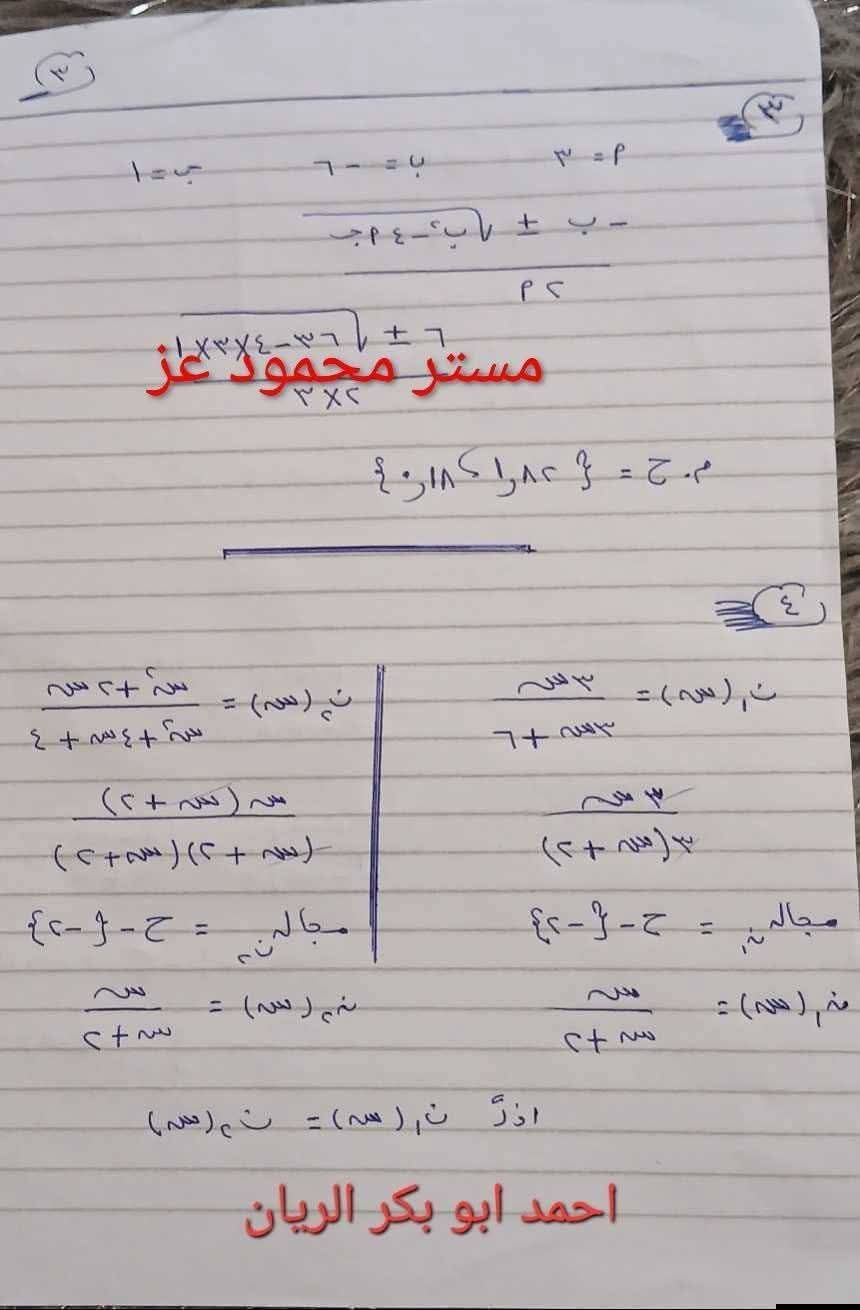 ٣
٣
أ = ٣ ب = -٦ جـ = ١
-ب ± √ب٢ - ٤أجـ
٢أ
٦ ± √٣٦ - ٤×٣×١
٢×٣
مستر محمود عز
م.ح = {١,٨٢ ، ٠,١٨}
٤
ن١(س) = ٣س / ٣س + ٦
٣س / ٣(س + ٢)
مجال ن١ = ح - {-٢}
ن١(س) = س / س + ٢
ن٢(س) = س٢ + ٢س / س٢ + ٤س + ٤
س(س + ٢) / (س + ٢)(س + ٢)
مجال ن٢ = ح - {-٢}
ن٢(س) = س / س + ٢
اذاً ن١(س) = ن٢(س)
احمد ابو بكر الريان